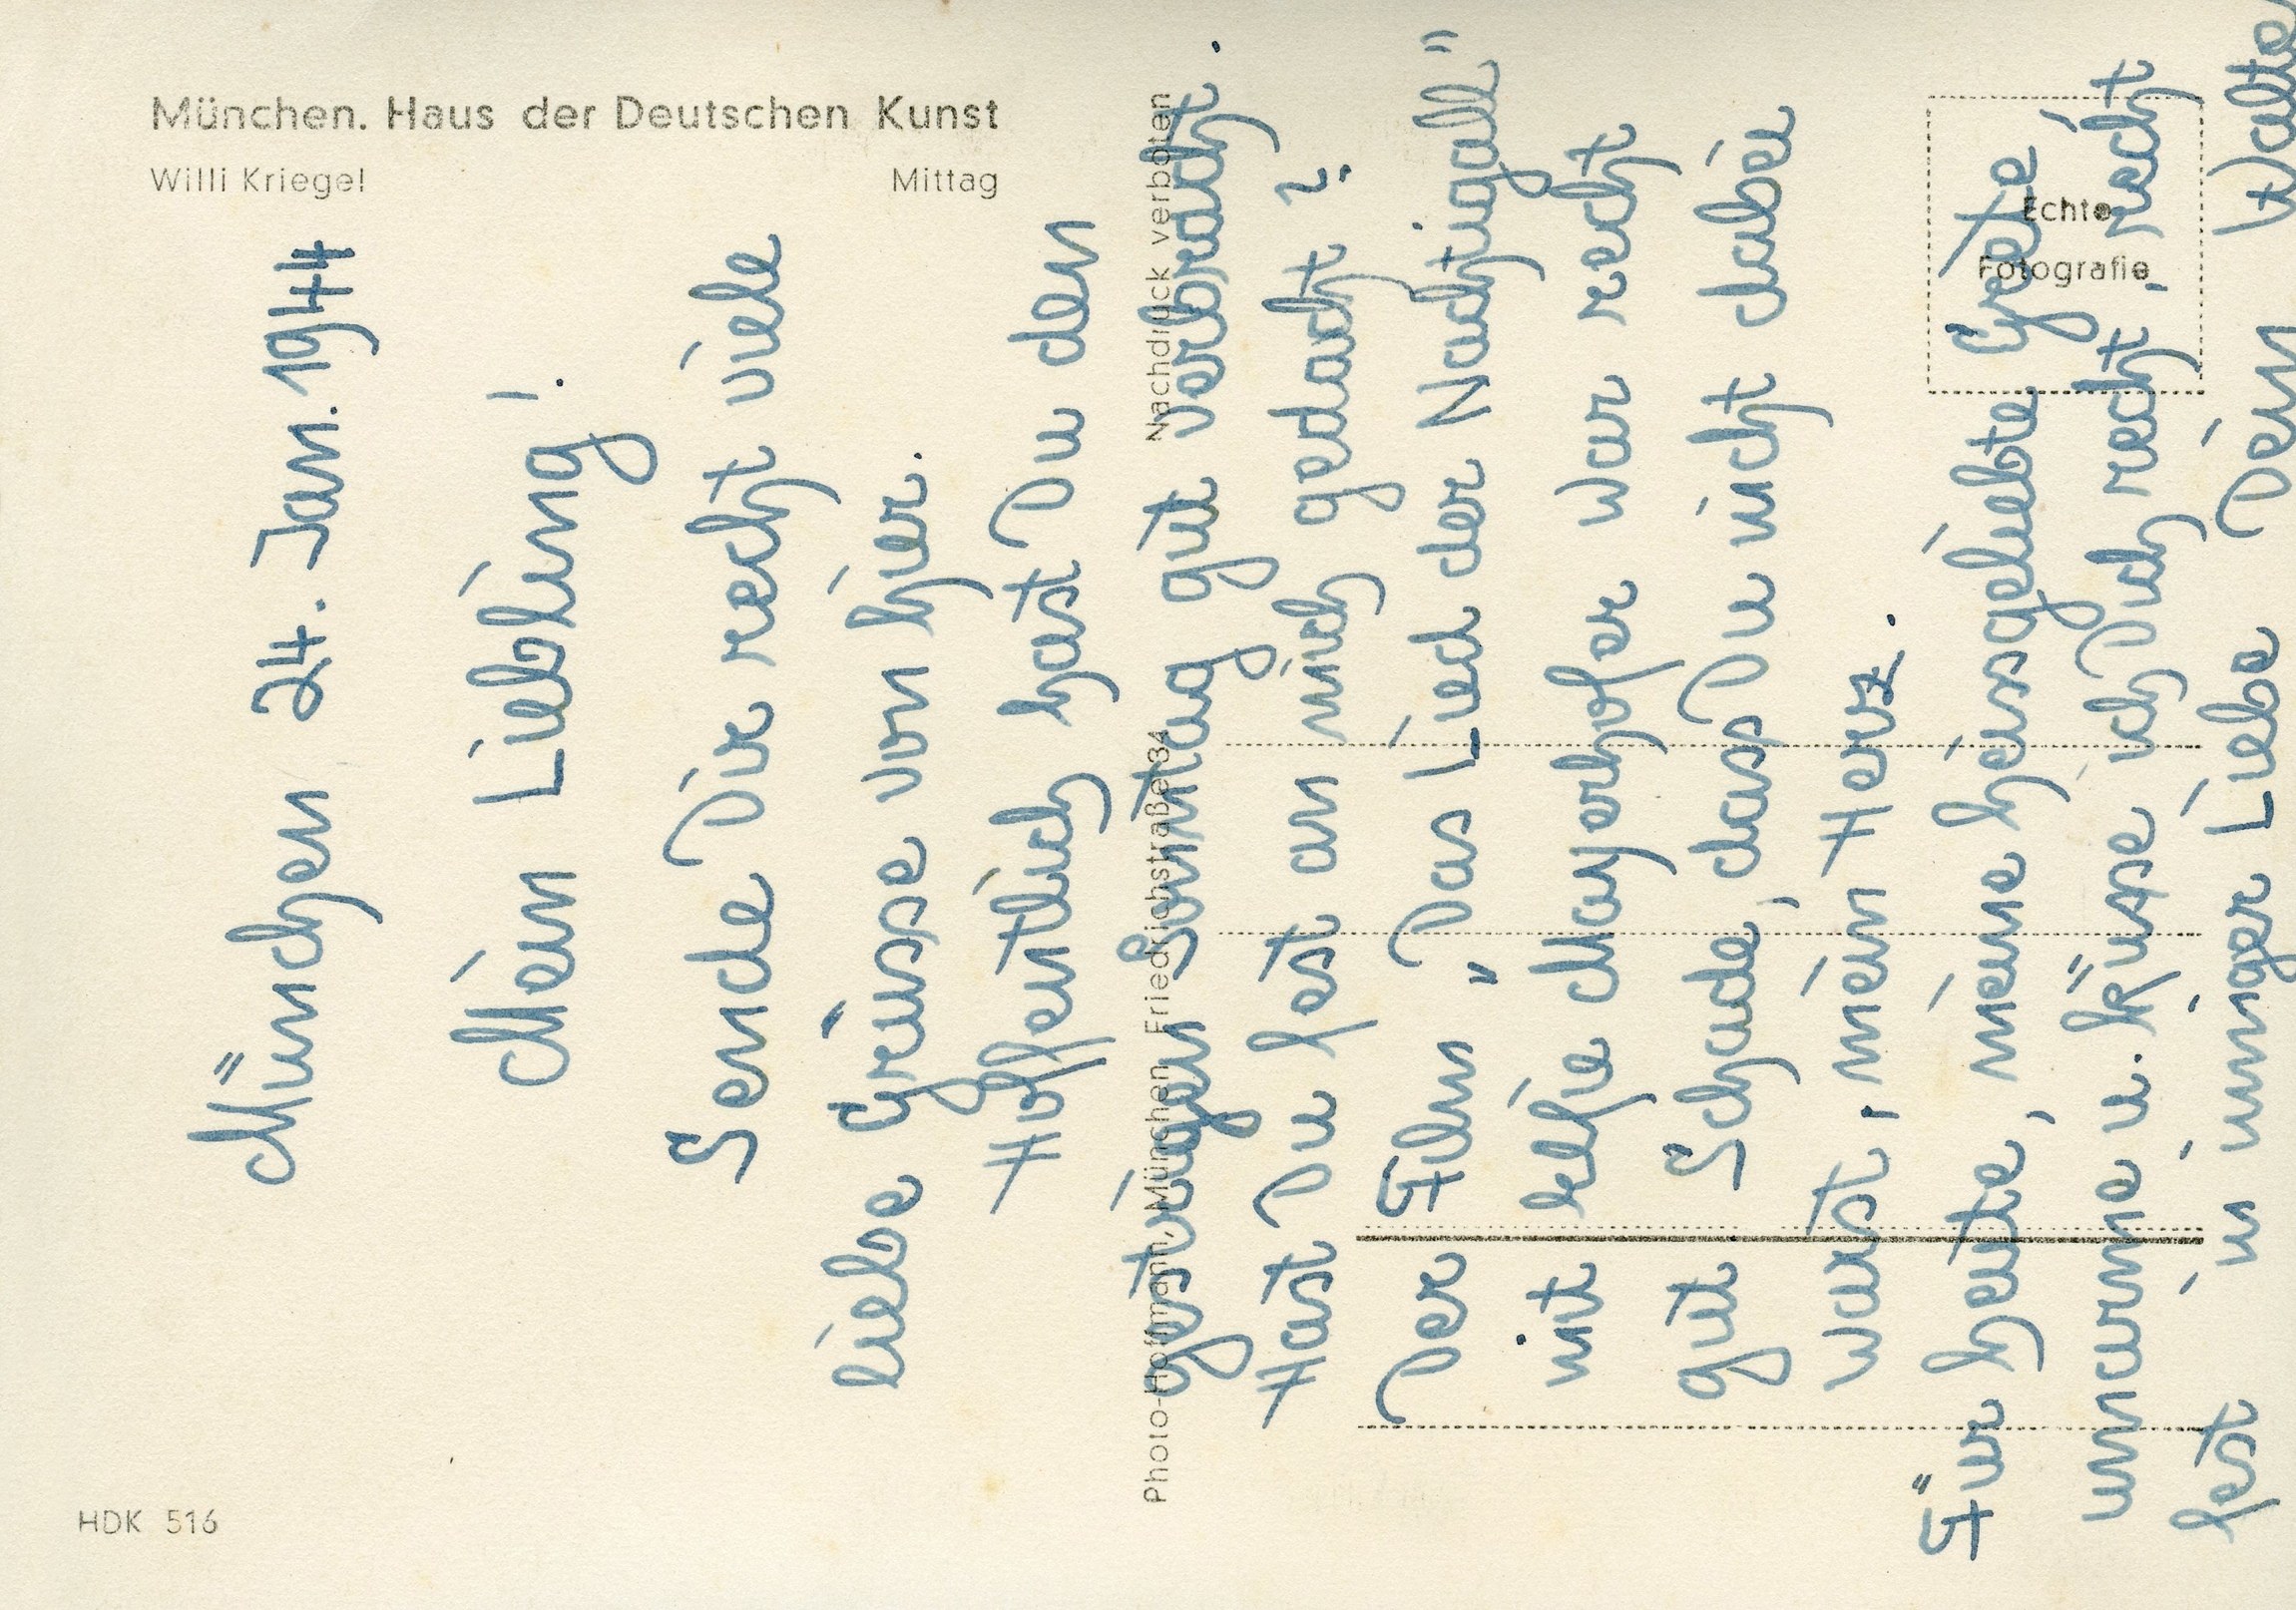 München. Haus der Deutschen Kunst
Willi Kriegel
Mittag
Nachdruck verboten
Photo-Hoffmann, München, Friedrichstraße 34
Echte
Fotografie
HDK 516
München 24. Jan. 1944
Mein Liebling!
Sende Dir recht viele
liebe Grüsse von hier.
Hoffentlich hast Du den
gestrigen Sonntag gut verbracht.
Hast Du fest an mich gedacht?
Der Film „Das Lied der Nachtigall"
mit Elfie Mayerhofer war recht
gut. Schade, dass Du nicht dabei
warst, mein Herz.
Für heute, meine heissgeliebte Grete,
umarme u. küsse ich Dich recht, recht
fest in inniger Liebe Dein Walte